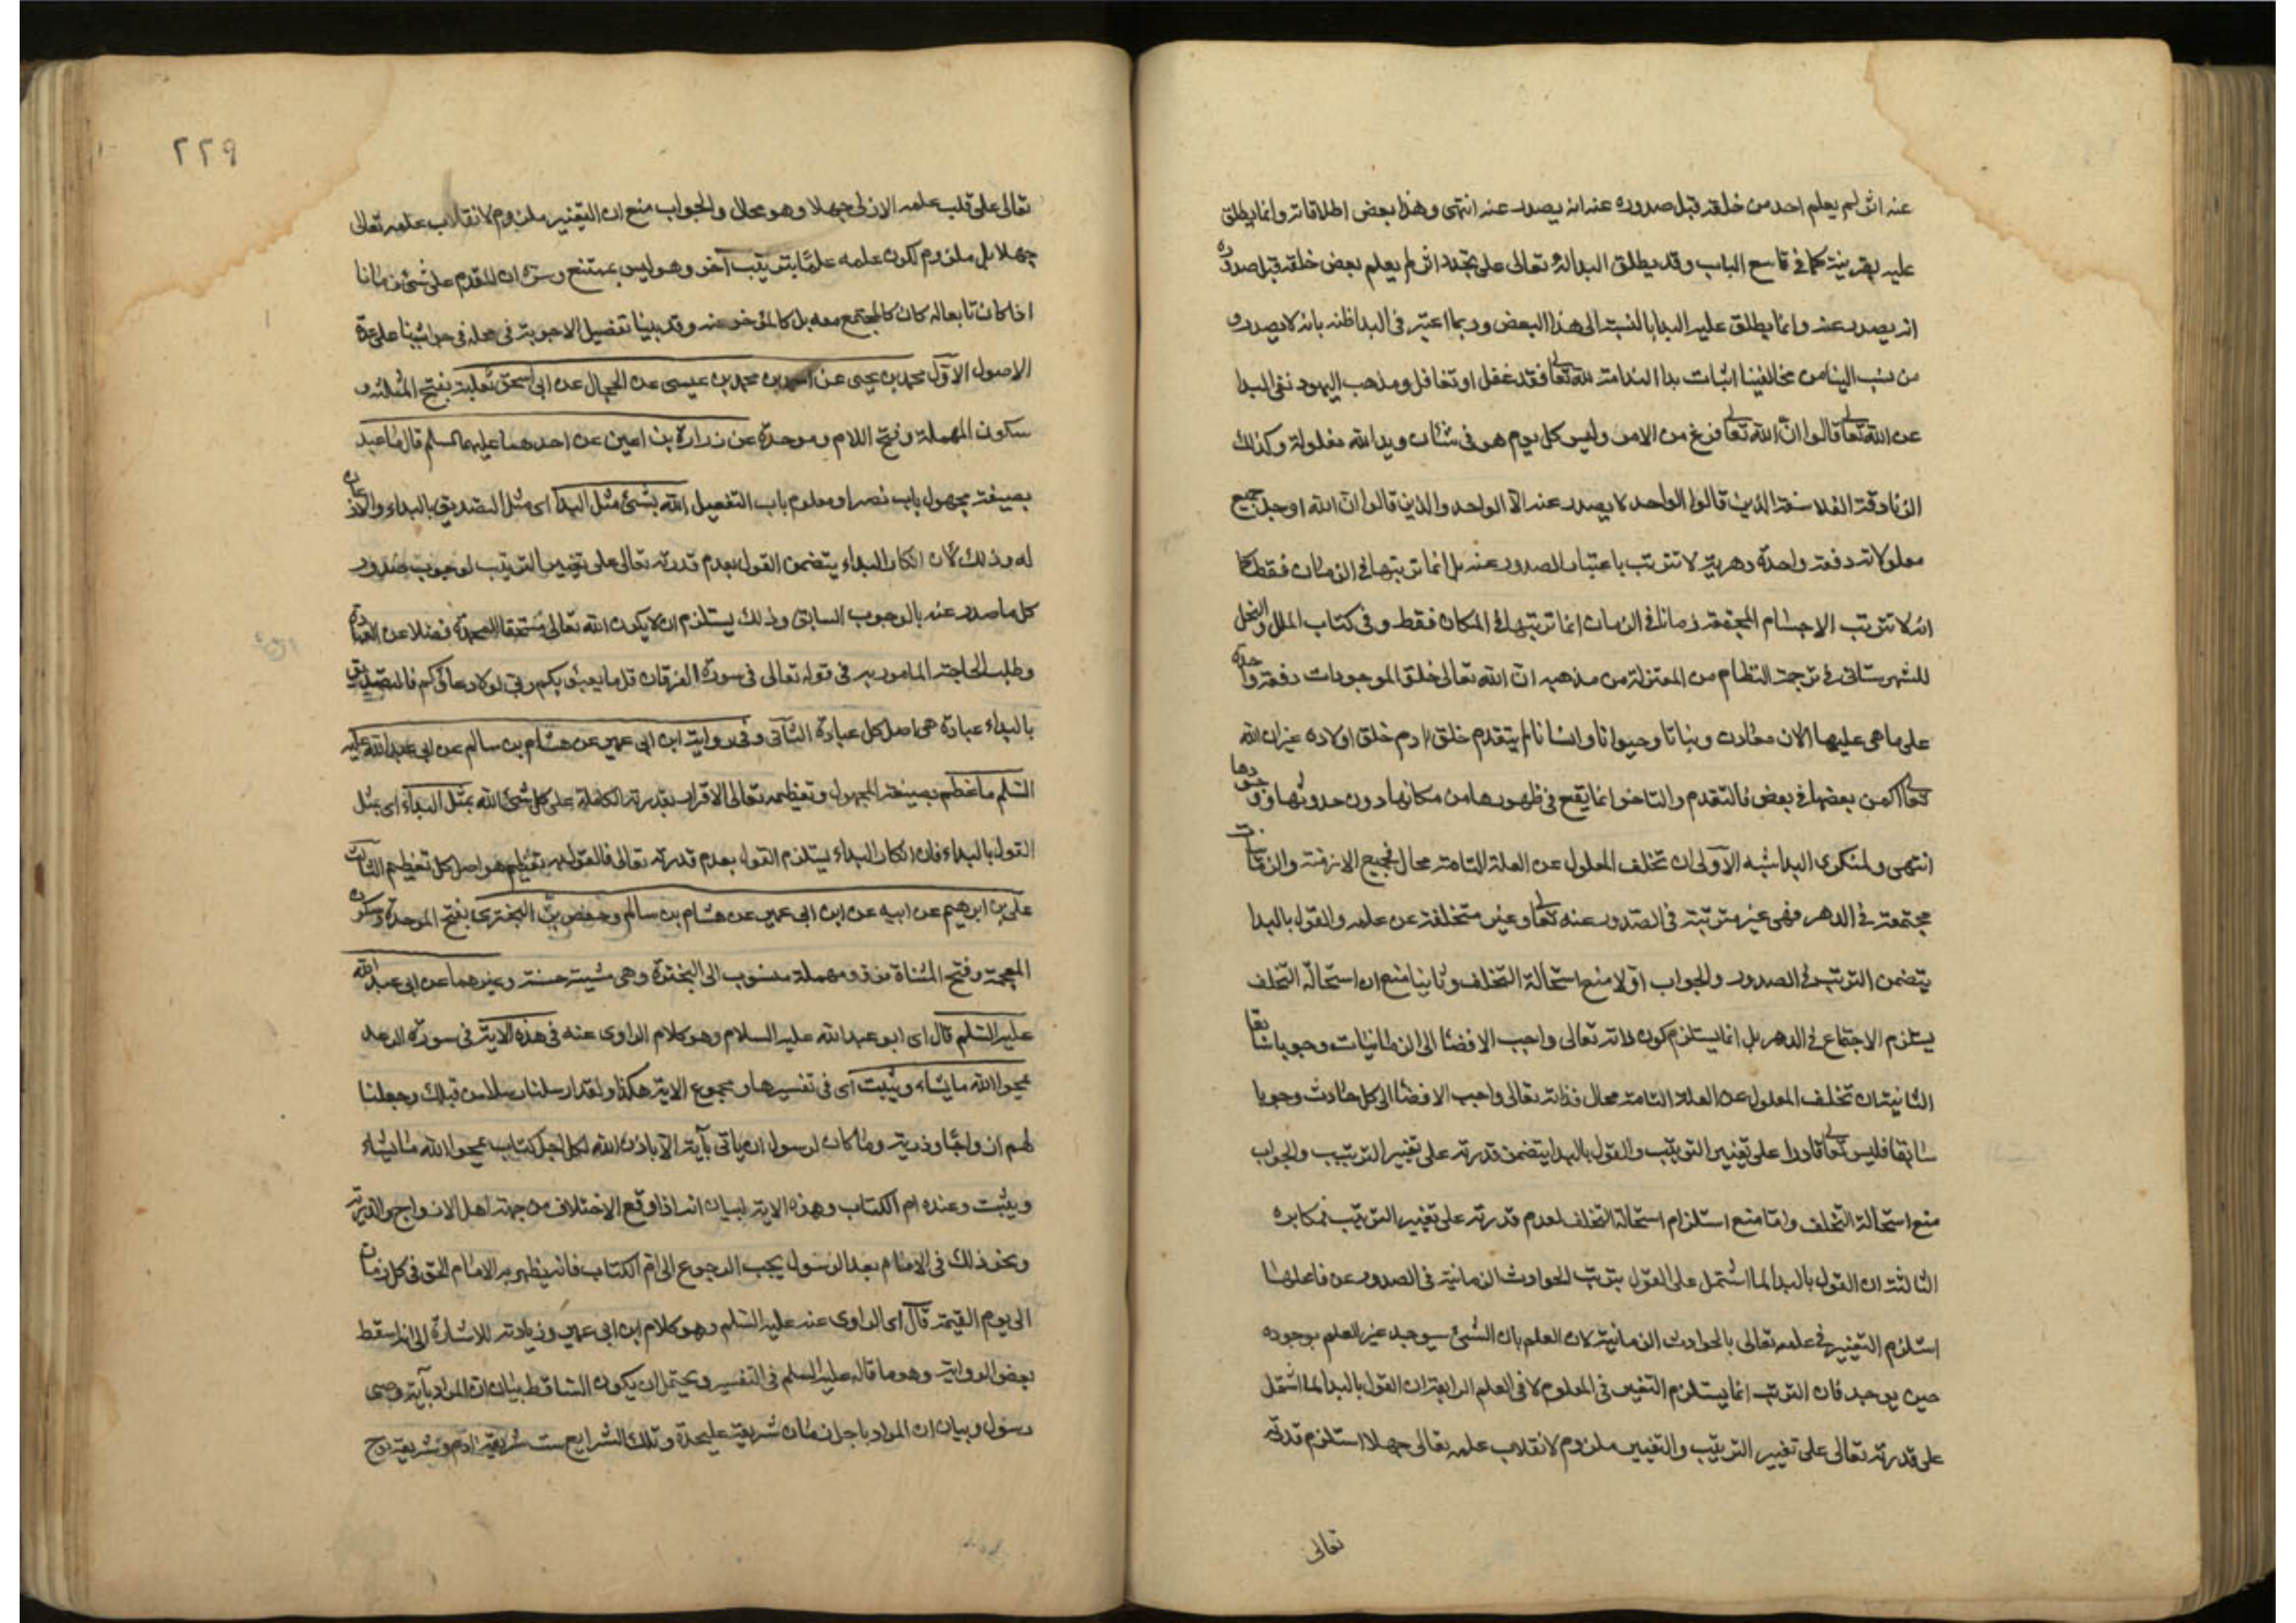 عنه اثر لم يعلم احد من خلقه قبل صدوره عنه انه يصدر عنه انتهى وهذا بعض اطلاقاته وانما يطلق
عليه بقرينة كما في تاسع الباب وقد يطلق البداله تعالى على تجدد اثر لم يعلم بعض خلقه قبل صدوره
انه يصدر عنه وانما يطلق عليه البدا بالنسبة الى هذا البعض وربما اعتبر في البدا ظنه بانه لا يصدر و
من نسب الينا من مخالفينا اثبات بدا الندامة لله تعالى فقد غفل او تغافل ومذهب اليهود نفى البدا
عن الله تعالى قالوا ان الله تعالى فرغ من الامر وليس كل يوم هو في شان ويد الله مغلولة وكذلك
الزنادقة الفلاسفة الذين قالوا الواحد لا يصدر عنه الا الواحد والذين قالوا ان الله اوجد جميع
معلولاته دفعة واحدة دهرية لا تترتب باعتبار الصدور عنه بل انما ترتبها في الزمان فقط كما
انه لا تترتب الاجسام المجتمعة زمانا في الزمان انما ترتبها في المكان فقط وفي كتاب الملل والنحل
للشهرستاني في ترجمة النظام من المعتزلة من مذهبه ان الله تعالى خلق الموجودات دفعة واحدة
على ما هى عليها الان معادن ونباتا وحيوانا وانسانا لم يتقدم خلق ادم خلق اولاده غير ان الله
تعالى اكمن بعضها في بعض فالتقدم والتاخر انما يقع في ظهورها من مكانها دون حدوثها ووجودها
انتهى ولمنكرى البدا شبه الاولى ان تخلف المعلول عن العلة التامة محال فجميع الازمنة والزمانيات
مجتمعة في الدهر فهى غير مترتبة في الصدور عنه تعالى وغير متخلفة عن علمه والقول بالبدا
يتضمن الترتب في الصدور والجواب اولا منع استحالة التخلف وثانيا منع ان استحالة التخلف
يستلزم الاجتماع في الدهر بل انما يستلزم كون ذاته تعالى واجب الافضا الى الزمانيات وجوبا سابقا
الثانية ان تخلف المعلول عن العلة التامة محال فذاته تعالى واجب الافضا الى كل حادث وجوبا
سابقا فليس تعالى قادرا على تغيير الترتيب والقول بالبدا يتضمن قدرته على تغيير الترتيب والجواب
منع استحالة التخلف واما منع استلزام استحالة التخلف لعدم قدرته على تغيير الترتيب فمكابره
الثالثة ان القول بالبدا لما اشتمل على القول بترتب الحوادث الزمانية في الصدور عن فاعلها
استلزم التغيير في علمه تعالى بالحوادث الزمانية لان العلم بان الشئ سيوجد غير العلم بوجوده
حين يوجد فان الترتب انما يستلزم التغير في المعلوم لا في العلم الرابعة ان القول بالبدا لما اشتمل
على قدرته تعالى على تغيير الترتيب والتغيير ملزوم لانقلاب علمه تعالى جهلا استلزم قدرته
تعالى
٢٢٩
تعالى على قلب علمه الازلى جهلا وهو محال والجواب منع ان التغيير ملزوم لانقلاب علمه تعالى
جهلا بل ملزوم لكون علمه علما بترتيب آخر وهو ليس بممتنع وسره ان المقدم على شئ زمانا
اذا كان تابعا له كان كالمجتمع معه بل كالمؤخر عنه وقد بينا تفصيل الاجوبة في محله في حواشينا على عدة
الاصول الاول محمد بن يحيى عن احمد بن محمد بن عيسى عن الحجال عن ابى اسحق ثعلبة بفتح المثلثة و
سكون المهملة وفتح اللام وموحدة عن زرارة بن اعين عن احدهما عليهما السلم قال ما عبد
بصيغة مجهول باب نصر او معلوم باب التفعيل الله بشئ مثل البدا اى مثل التصديق بالبداء والاذعان
له وذلك لان انكار البداء يتضمن القول بعدم قدرته تعالى على تغيير الترتيب لوجوب صدور
كل ما صدر عنه بالوجوب السابق وذلك يستلزم ان لا يكون الله تعالى مستحقا للحمد فضلا عن العبادة
وطلب الحاجة المامور به في قوله تعالى في سورة الفرقان قل ما يعبؤ بكم ربى لولا دعاؤكم فالتصديق
بالبداء عبادة هى اصل كل عبادة الثانى وفي رواية ابن ابى عمير عن هشام بن سالم عن ابى عبد الله عليه
السلم ما عظم بصيغة المجهول وتعظيمه تعالى الاقرار بقدرته الكاملة على كل شئ الله بمثل البداء اى بمثل
القول بالبداء فان انكار البداء يستلزم القول بعدم قدرته تعالى فالقول به تعظيم هو اصل كل تعظيم الثالث
على بن ابرهيم عن ابيه عن ابن ابى عمير عن هشام بن سالم وحفص بن البخترى بفتح الموحدة وسكون
المعجمة وفتح المثناة فوق ومهملة منسوب الى البخترة وهى مشية حسنة وغيرهما عن ابى عبد الله
عليه السلم قال اى ابو عبد الله عليه السلام وهو كلام الراوى عنه في هذه الاية في سورة الرعد
يمحوا الله ما يشاء ويثبت اى في تفسيرها ومجموع الاية هكذا ولقد ارسلنا رسلا من قبلك وجعلنا
لهم ازواجا وذرية وما كان لرسول ان ياتى بآية الا باذن الله لكل اجل كتاب يمحوا الله ما يشاء
ويثبت وعنده ام الكتاب وهذه الاية لبيان انه اذا وقع الاختلاف من جهة اهل الازواج والذرية
ونحو ذلك في الامام بعد الرسول يجب الرجوع الى ام الكتاب فانه يظهر به الامام الحق في كل زمان
الى يوم القيمة قال اى الراوى عنه عليه السلم وهو كلام ابن ابى عمير وزيادته للاشارة الى انه اسقط
بعض الرواية وهو ما قاله عليه السلم في التفسير ويحتمل ان يكون الساقط بيان ان المراد بآية وصى
رسول وبيان ان المراد باجل زمان شريعة عليحدة وتلك الشرايع ست شريعة ادم وشريعة نوح